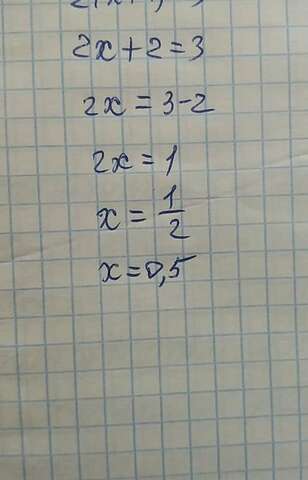 2x+2=3
2x = 3-2
2x = 1
x = 1/2
x = 0,5